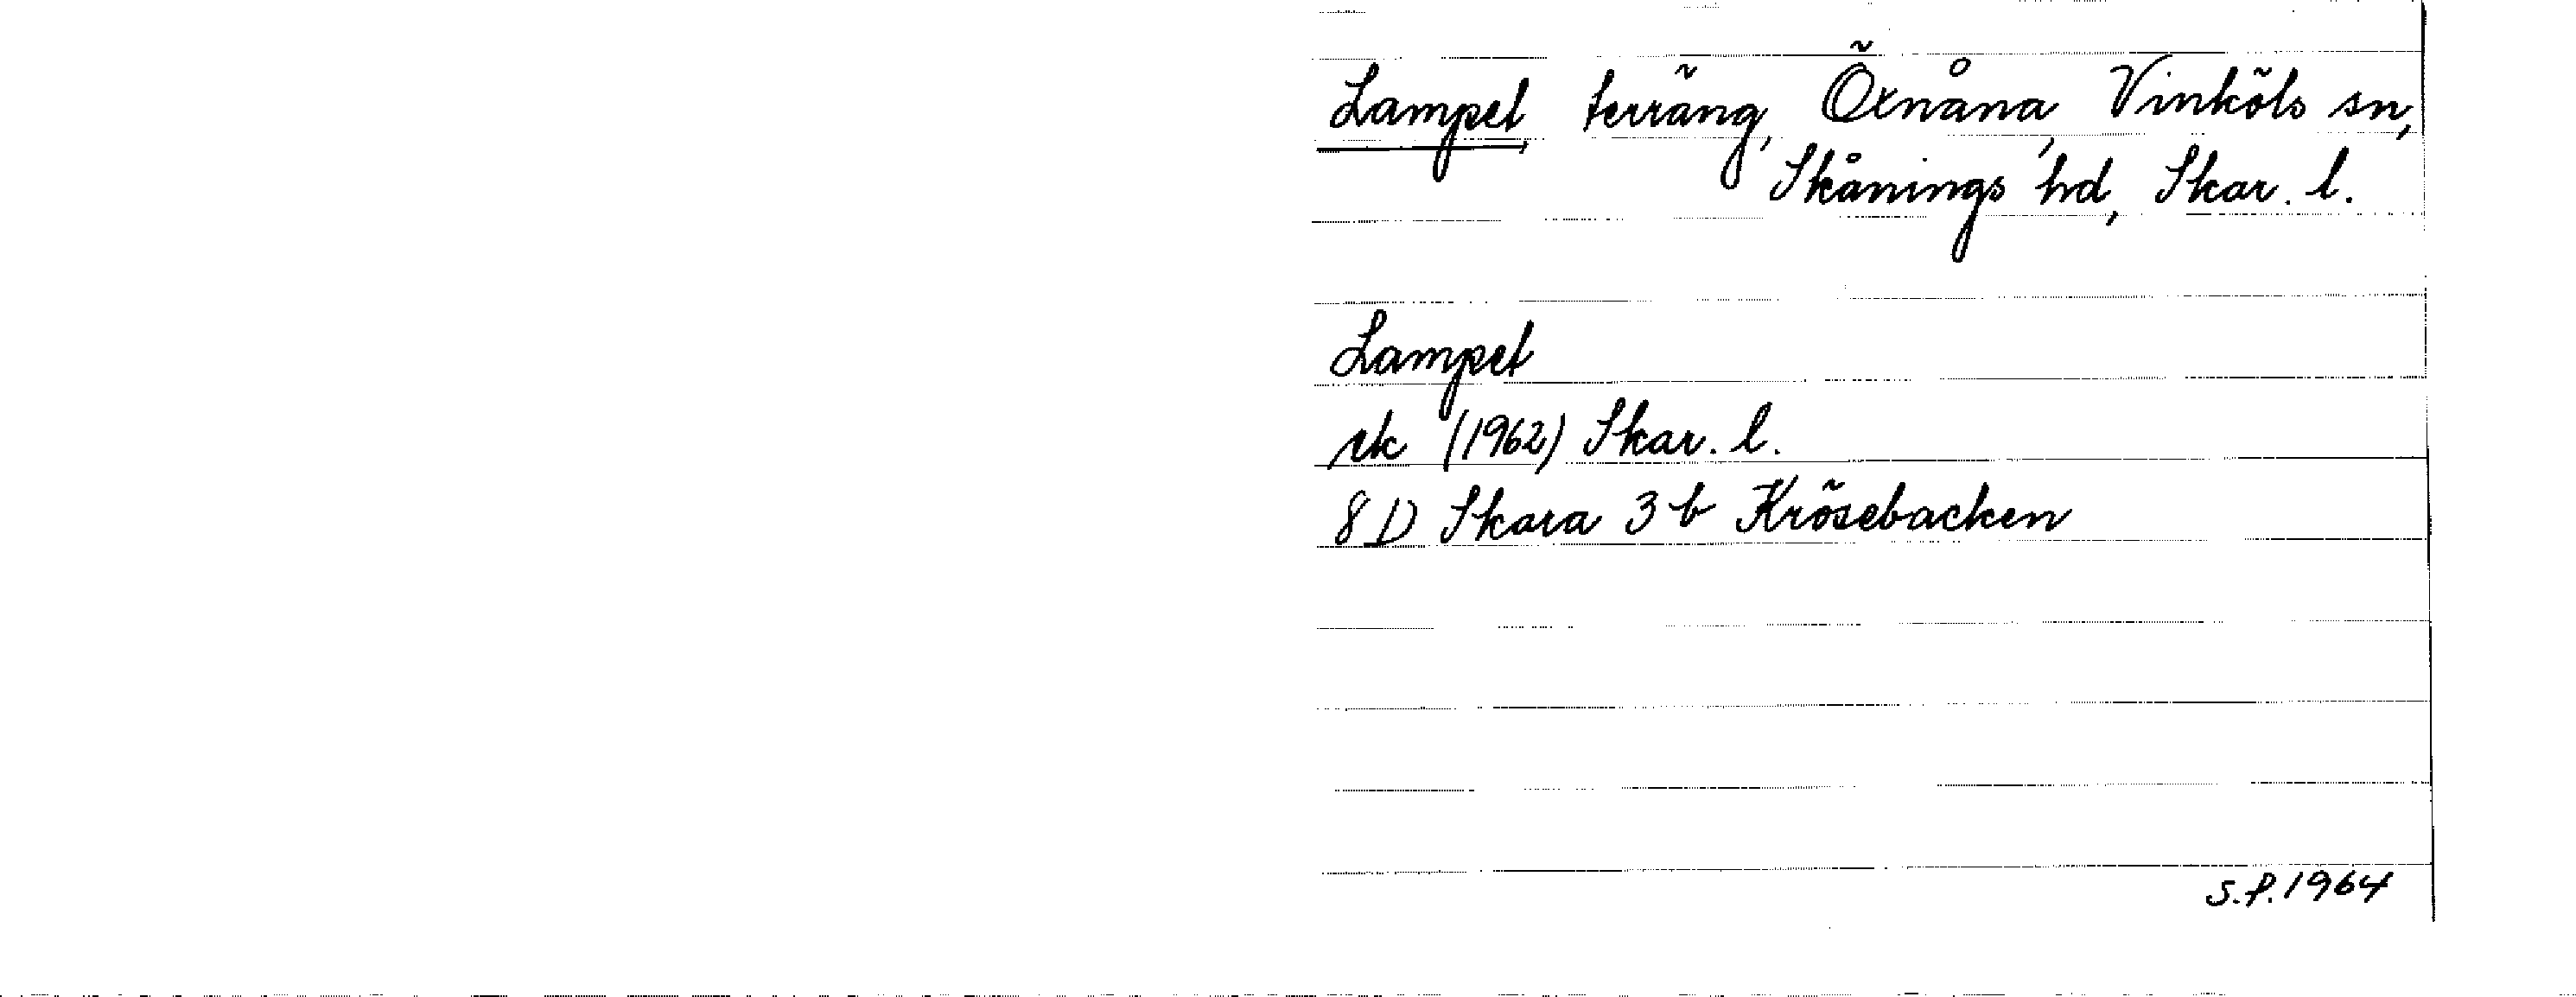 Lampet terräng, Öxnåna, Vinköls sn,
Skånings hd, Skar. l.
Lampet
rk (1962) Skar. l.
8 D Skara 3 b Krösebacken
S.P. 1964